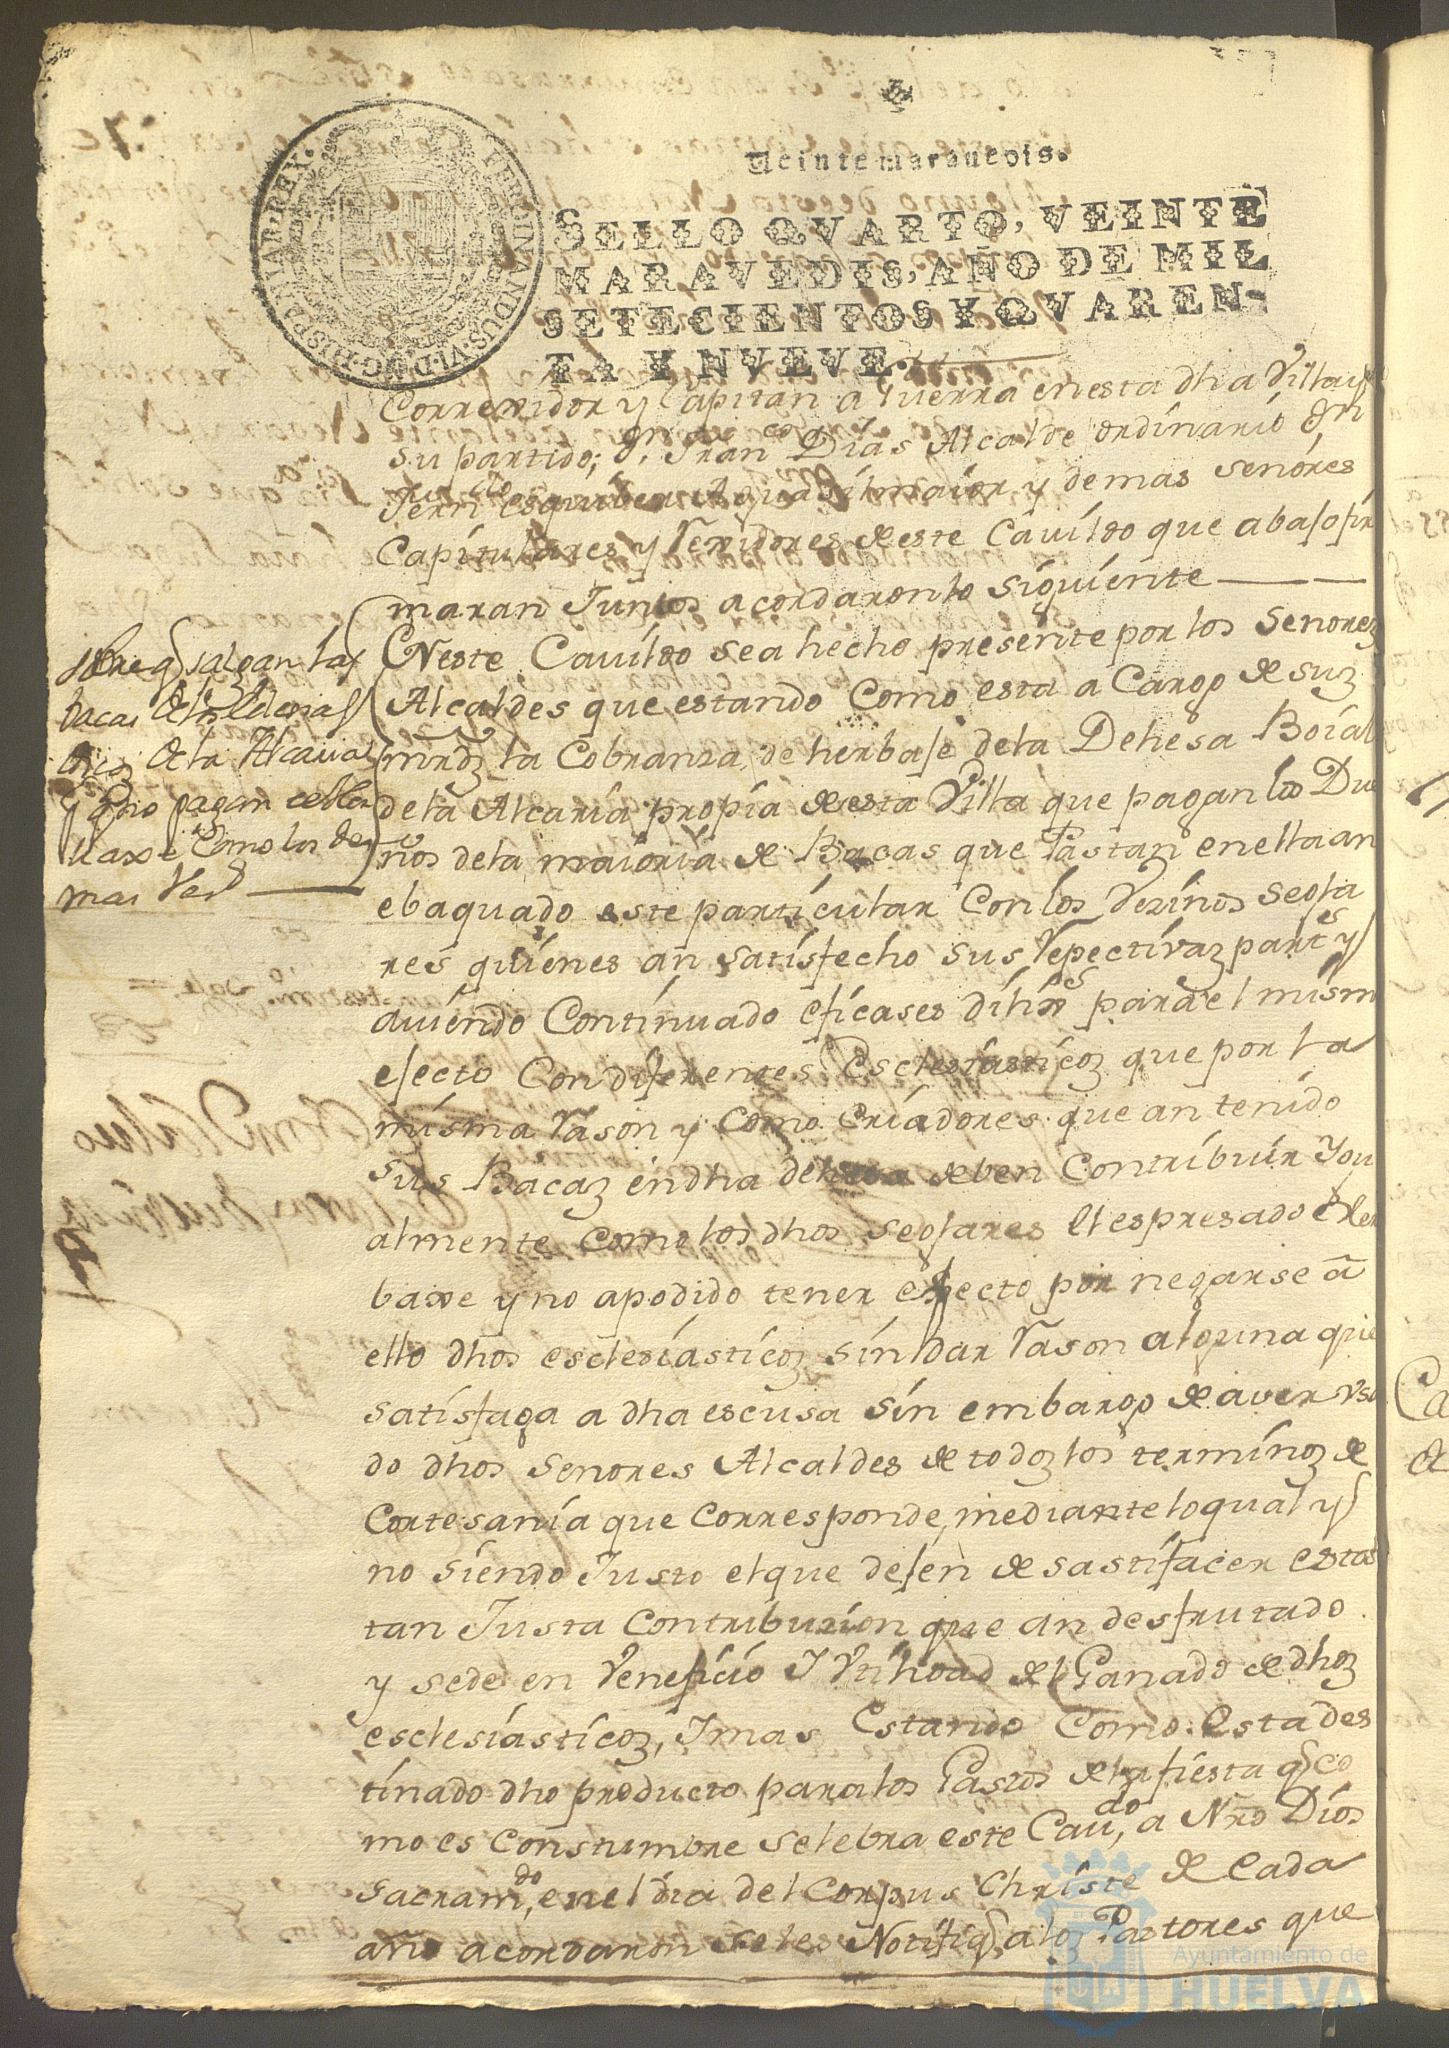 Veinte marauedis.
SELLO QVARTO, VEINTE
MARAVEDIS, AÑO DE MIL
SETECIENTOS Y QVAREN-
TA Y NVEVE.
FERDINANDUS.VI.D.G.HISPANIAR.REX.
Corregidor y Capitan a Guerra en esta dha Villa y
su partido; Dn. Franco Dias Alcalde ordinario Dn
Esquibel Alguasil maior y demas Señores
Capitulares y Regidores de este Cauildo que abajo fir
maran Juntos acordaron lo siguiente
sobre q salgan las
bacas de los Eclesias
ticos de la Alcaria
y qe no pagan el her
uaxe como los de
mas Vesos
ENeste Cauildo se a hecho presente por los Señores
Alcaldes que estando como esta a Cargo de sus
mrds la Cobranza de herbaje dela Dehesa Boial
dela Alcaria propia de esta Villa que pagan los Due
ños dela maioria de Bacas que Pastan en ella an
ebaquado este particular Con los Vezinos Segla
res quienes an satisfecho sus Repectivas partes y
auiendo Continuado eficases dilixs para el mism
efecto Con diferentes Esclesiasticos que por la
misma Rason y como Criadores que an tenido
sus Bacas en dha dehesa deben Contribuir Ygu
almente como los dhos seglares el espresado Her
baxe y no a podido tener efecto por negarse a
ello dhos esclesiasticos sin dar Rason alguna que
satisfaga a dha escusa sin embargo de aver vsa
do dhos Señores Alcaldes de todos los terminos de
Cortesania que corresponde, mediante lo qual y
no siendo Justo el que dejen de sastifacer esta
tan Justa Contribuzion que an desfrutado
y sede en Veneficio J Vtilidad del Ganado de dhos
esclesiasticos, J mas Estando Como Esta des
tinado dho producto para los Gastos de la fiesta q co
mo es Constumbre selebra este Cauido, a Nro Dios
sacramdo, en el dia del Corpus Christe de cada
año acordaron se les Notifiq a los Pastores que
Ayuntamiento de
HUELVA